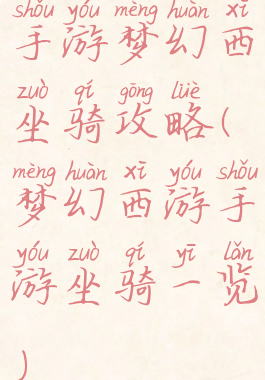 shǒu yóu mèng huàn xī
手游梦幻西
zuò qí gōng lüè
坐骑攻略(
mèng huàn xī yóu shǒu
梦幻西游手
yóu zuò qí yī lǎn
游坐骑一览
)